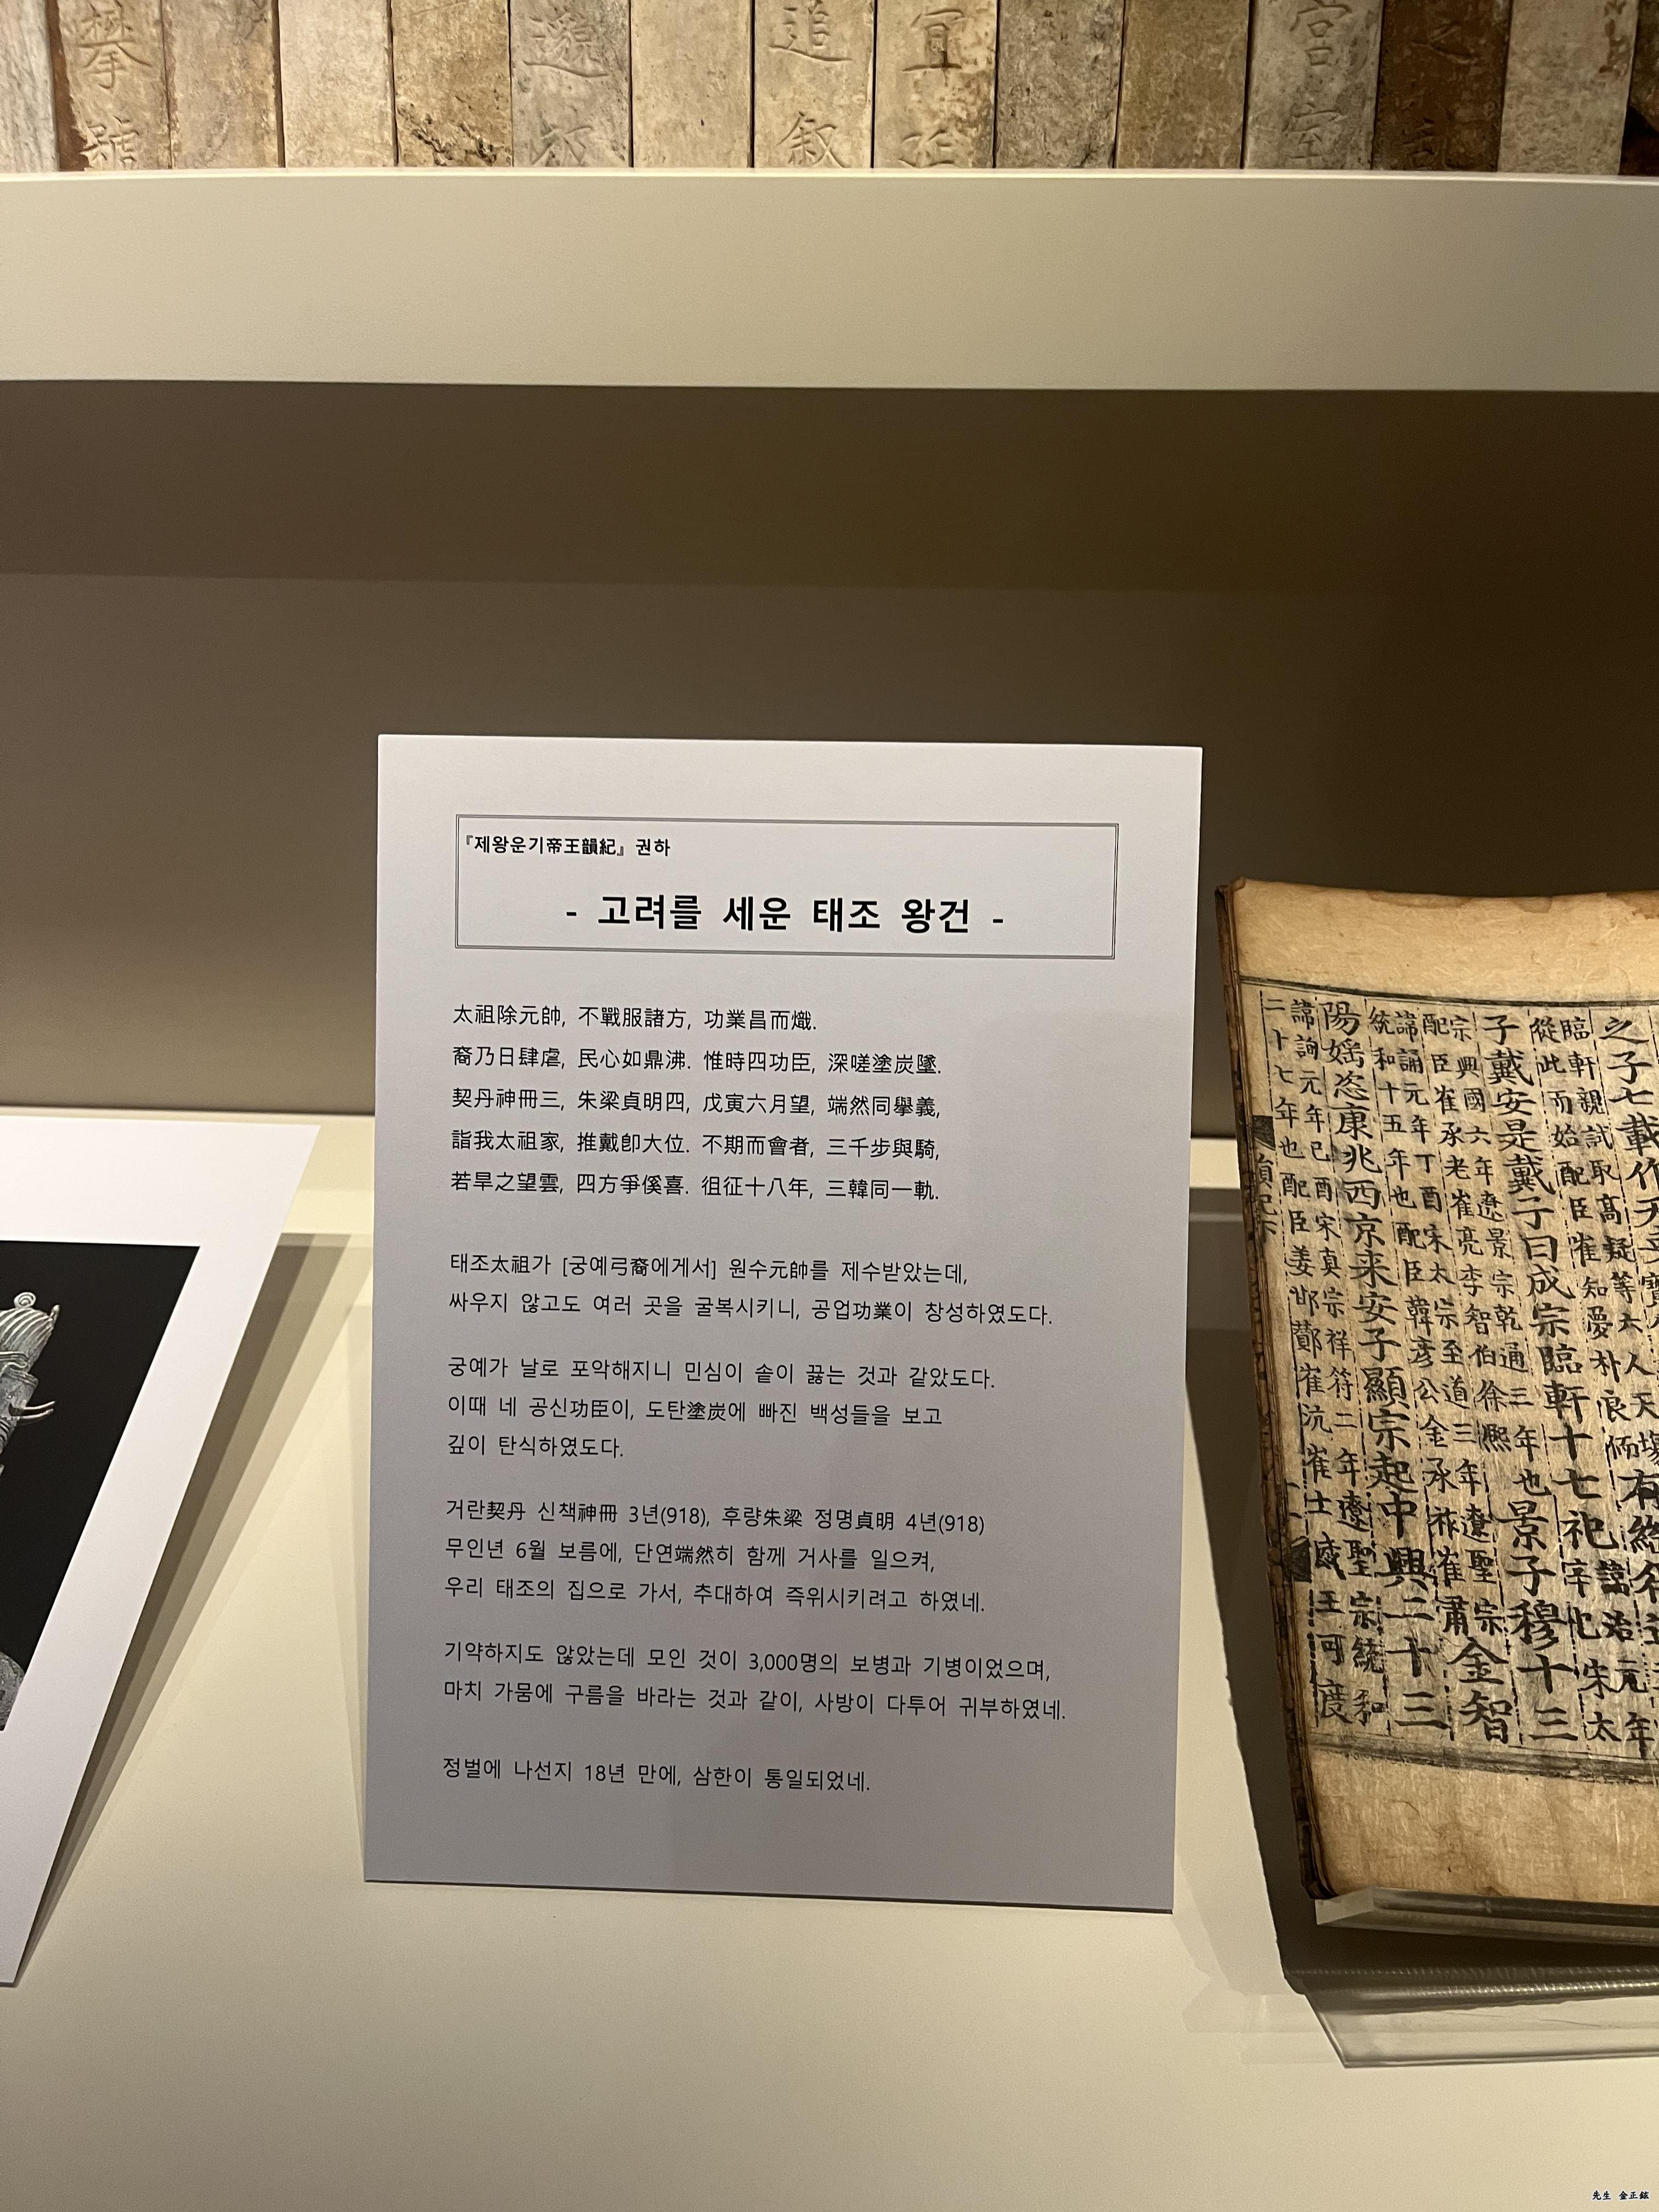 攀
號
邈
追
叙
宜
宮
室
『제왕운기帝王韻紀』 권하
- 고려를 세운 태조 왕건 -
太祖除元帥, 不戰服諸方, 功業昌而熾.
裔乃日肆虐, 民心如鼎沸. 惟時四功臣, 深嗟塗炭墜.
契丹神冊三, 朱梁貞明四, 戊寅六月望, 端然同擧義,
詣我太祖家, 推戴卽大位. 不期而會者, 三千步與騎,
若旱之望雲, 四方爭傒喜. 徂征十八年, 三韓同一軌.
태조太祖가 [궁예弓裔에게서] 원수元帥를 제수받았는데,
싸우지 않고도 여러 곳을 굴복시키니, 공업功業이 창성하였도다.
궁예가 날로 포악해지니 민심이 솥이 끓는 것과 같았도다.
이때 네 공신功臣이, 도탄塗炭에 빠진 백성들을 보고
깊이 탄식하였도다.
거란契丹 신책神冊 3년(918), 후량朱梁 정명貞明 4년(918)
무인년 6월 보름에, 단연端然히 함께 거사를 일으켜,
우리 태조의 집으로 가서, 추대하여 즉위시키려고 하였네.
기약하지도 않았는데 모인 것이 3,000명의 보병과 기병이었으며,
마치 가뭄에 구름을 바라는 것과 같이, 사방이 다투어 귀부하였네.
정벌에 나선지 18년 만에, 삼한이 통일되었네.
之子七載作天
臨軒親試取高疑等六人天
從此而始配臣崔知夢朴良
子戴安是戴子曰成宗臨軒十七祀
宗興國六年遼景宗乾通三年也景子穆十三
配臣崔承老崔亮李智伯徐熙
諱誦元年丁酉宋太宗至道三年遼聖宗
統和十五年也配臣韓彦公金承祚崔肅金智
陽婬恣康兆西京來安子顯宗起中興二十三
諱詢元年己酉宋真宗祥符二年遼聖宗統和
二十七年也配臣姜邯鄭崔沆崔士威王可
先生 金正鉉